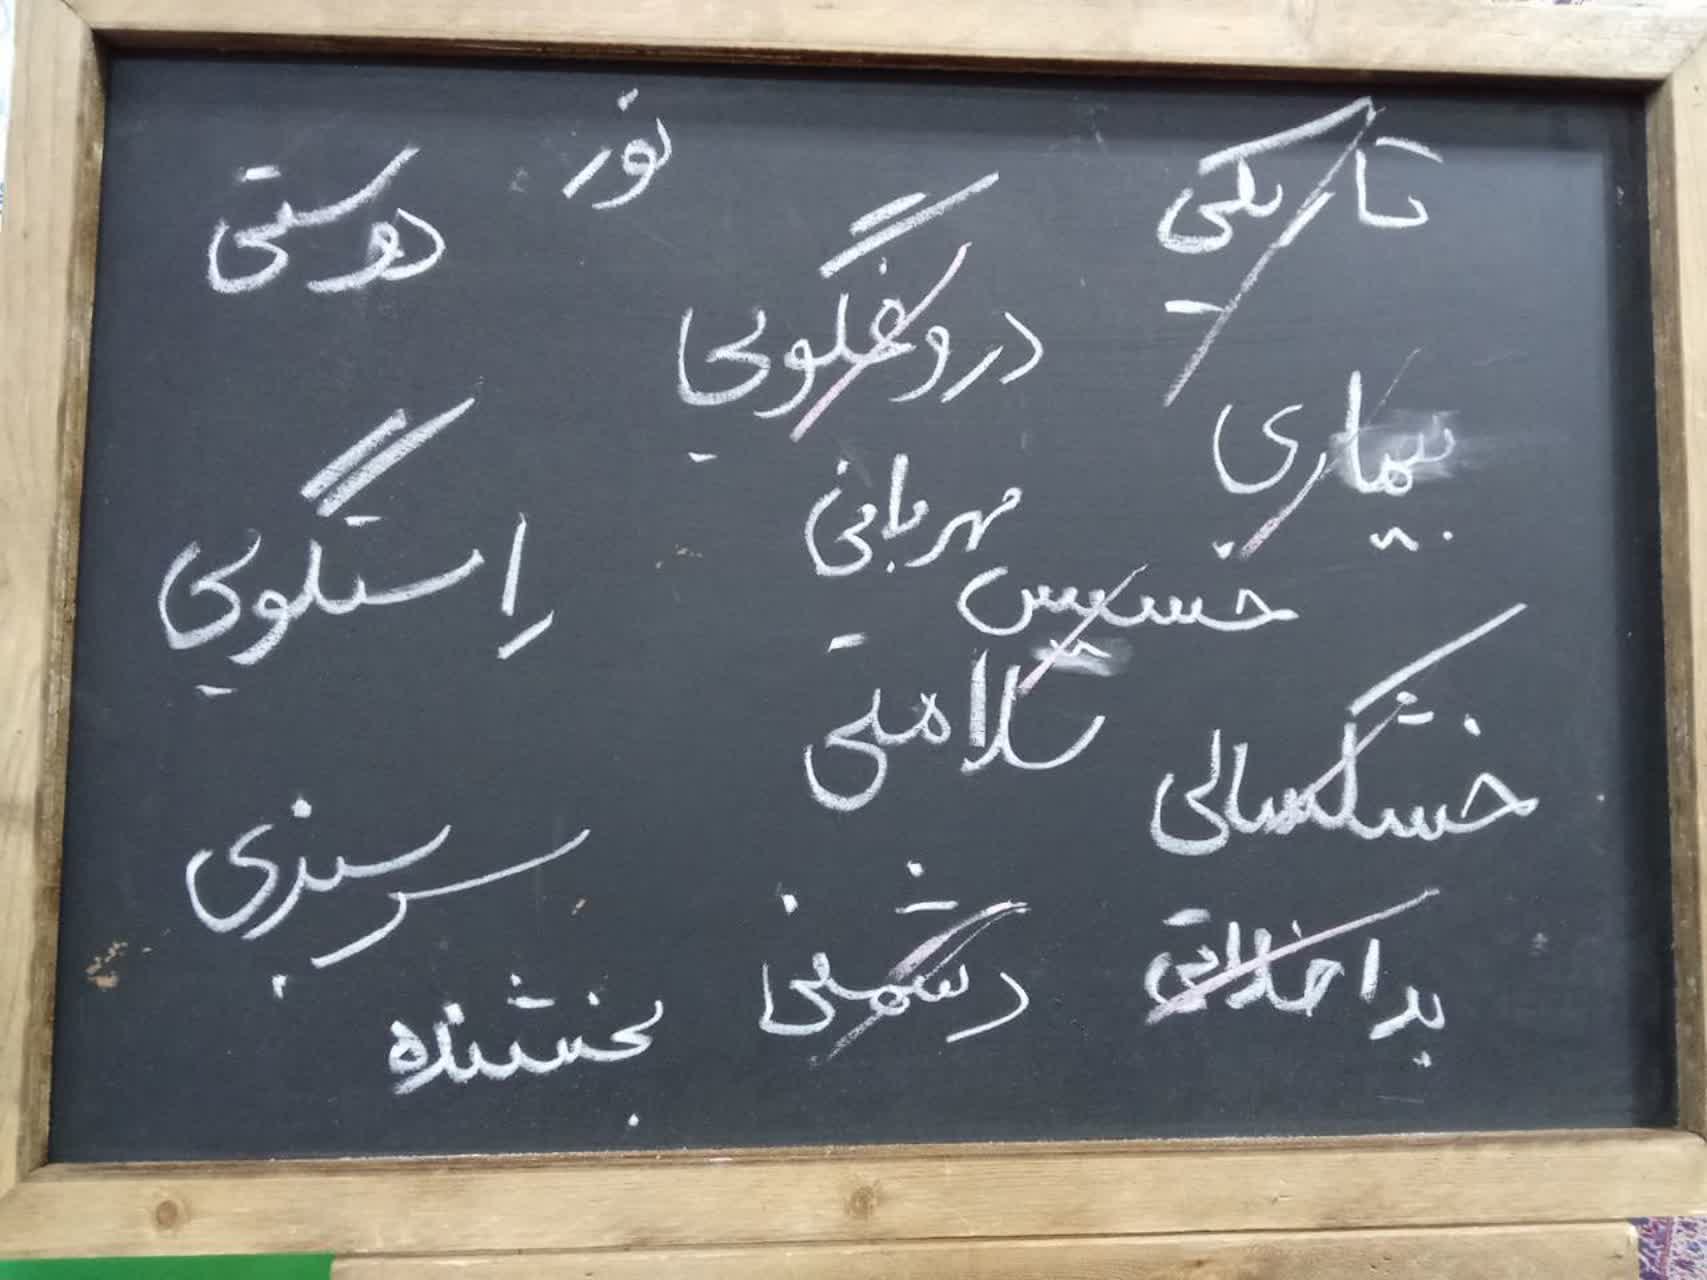 تاریکی
نور
دوستی
دروغگویی
بیماری
راستگویی
مهربانی
خسیس
سلامتی
خشکسالی
سرسبزی
دشمنی
بداخلاقی
بخشنده